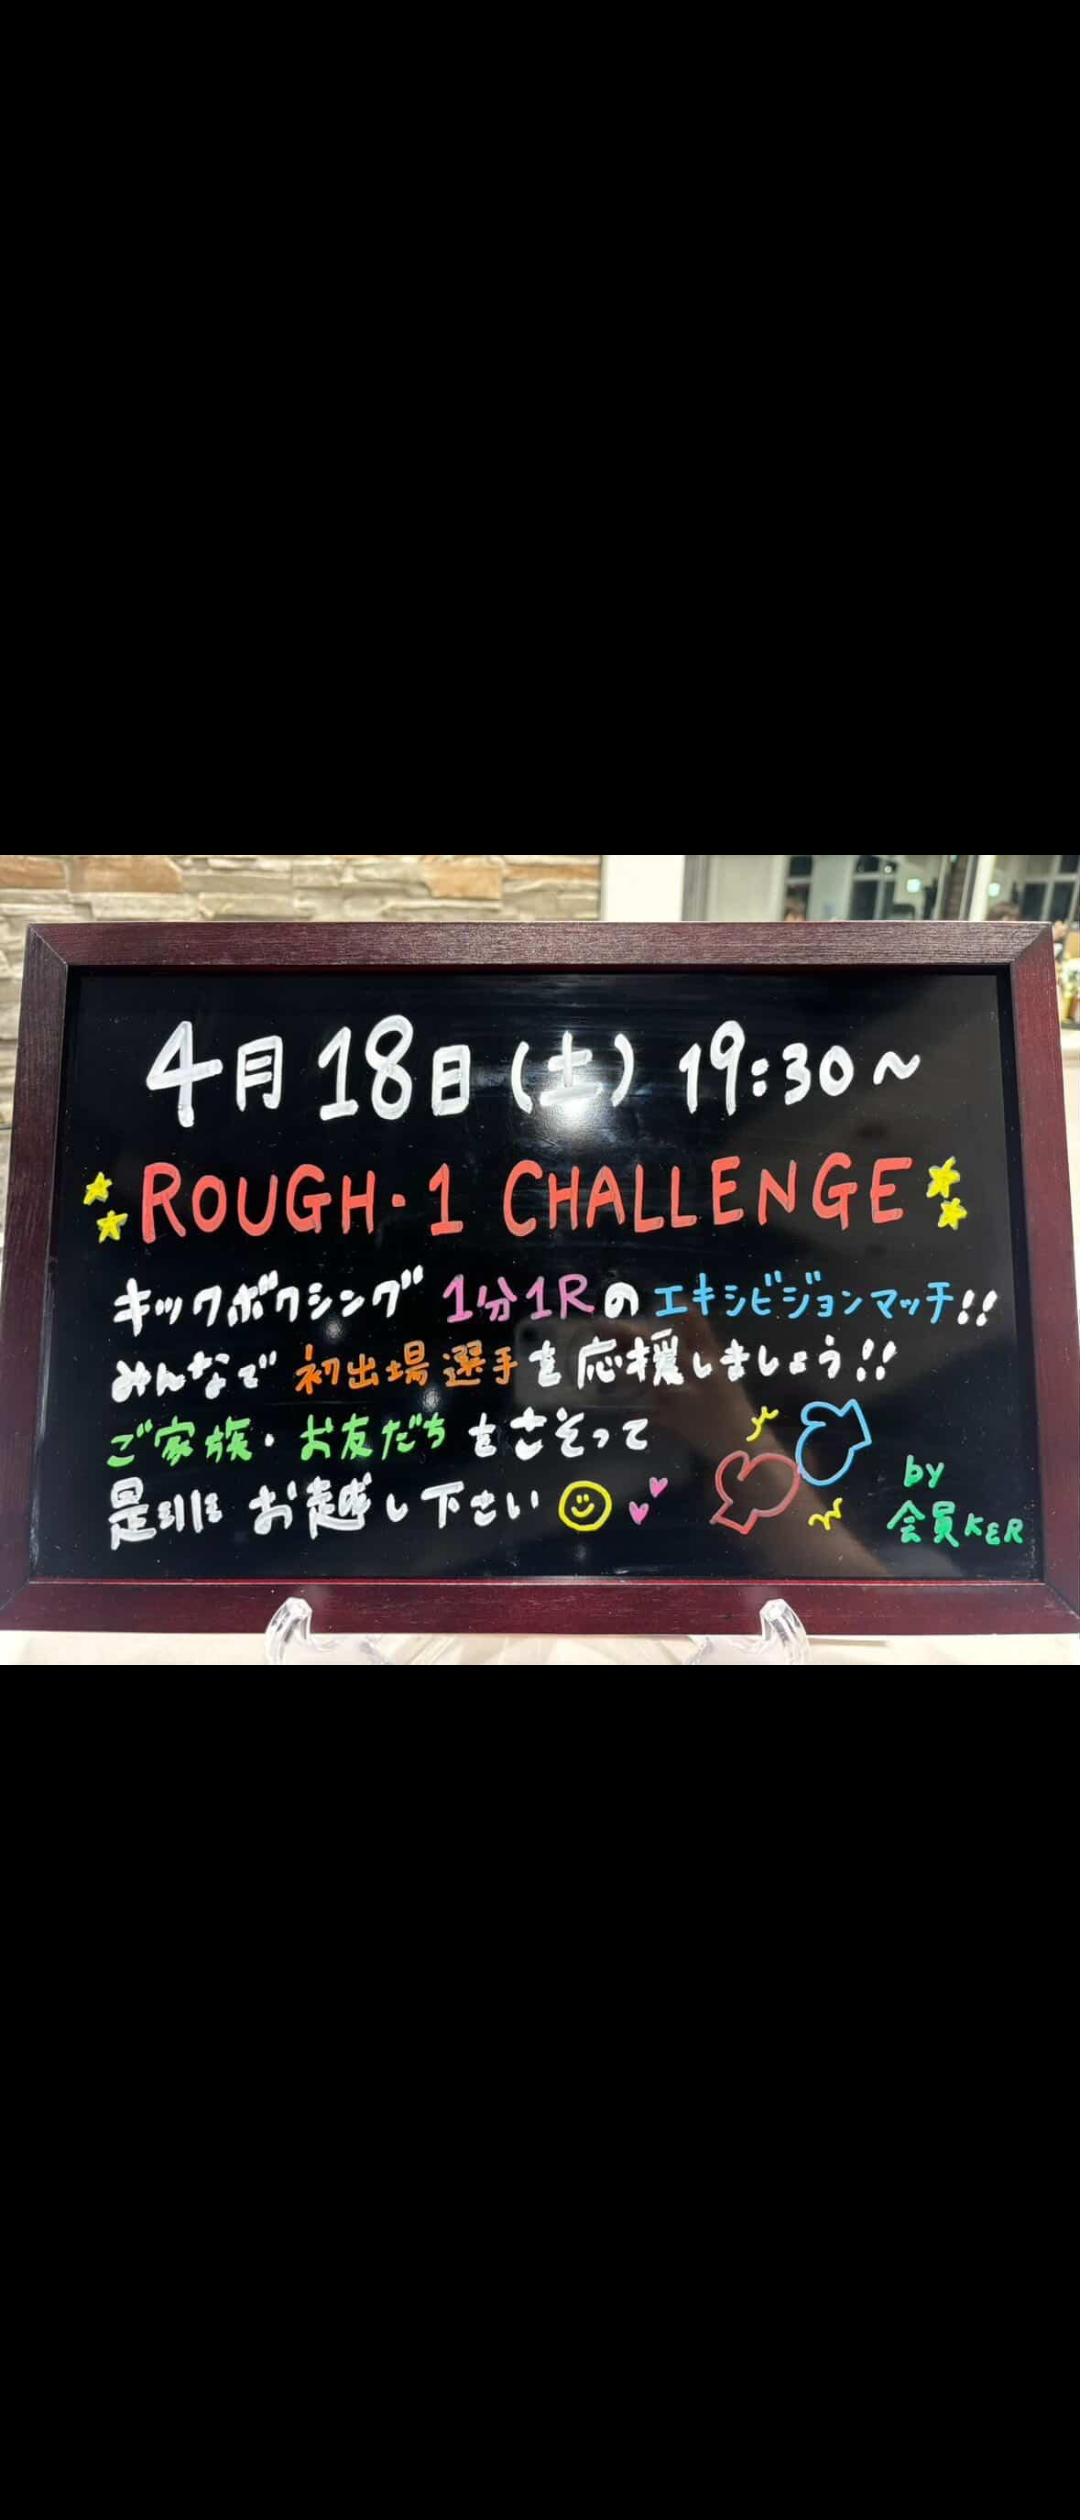 4月18日(土) 19:30～
ROUGH・1 CHALLENGE
キックボクシング 1分1Rのエキシビジョンマッチ!!
みんなで 初出場選手を応援しましょう!!
ご家族・お友だちをさそって
是非に お越し下さい
by
会員KER